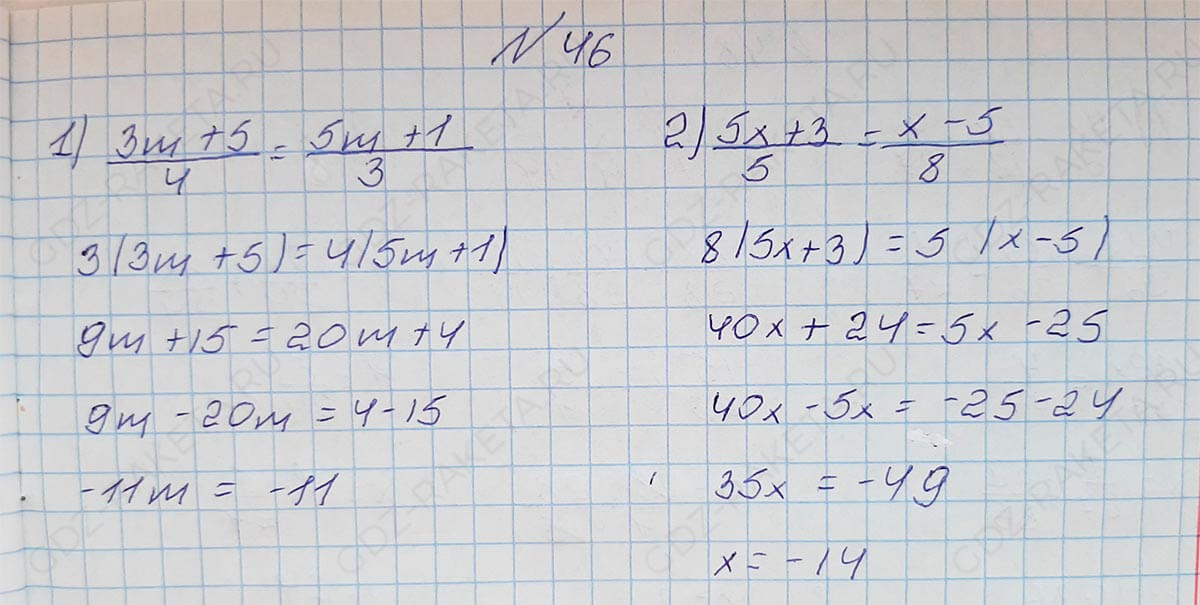 № 46
1) (3m + 5)/4 = (5m + 1)/3
3(3m + 5) = 4(5m + 1)
9m + 15 = 20m + 4
9m - 20m = 4 - 15
-11m = -11
2) (5x + 3)/5 = (x - 5)/8
8(5x + 3) = 5 (x - 5)
40x + 24 = 5x - 25
40x - 5x = -25 - 24
35x = -49
x = -14
GDZ-RAKETA.RU